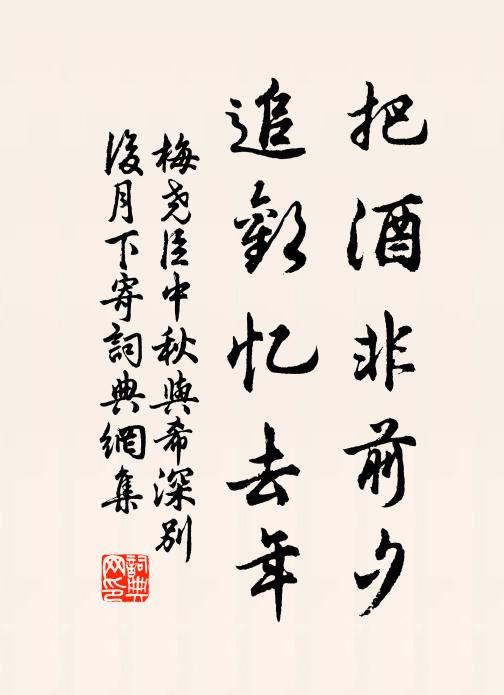 把酒非前夕
追歡忆去年
梅尧臣中秋與希深別
後月下寄詞典網集
詞典
网印